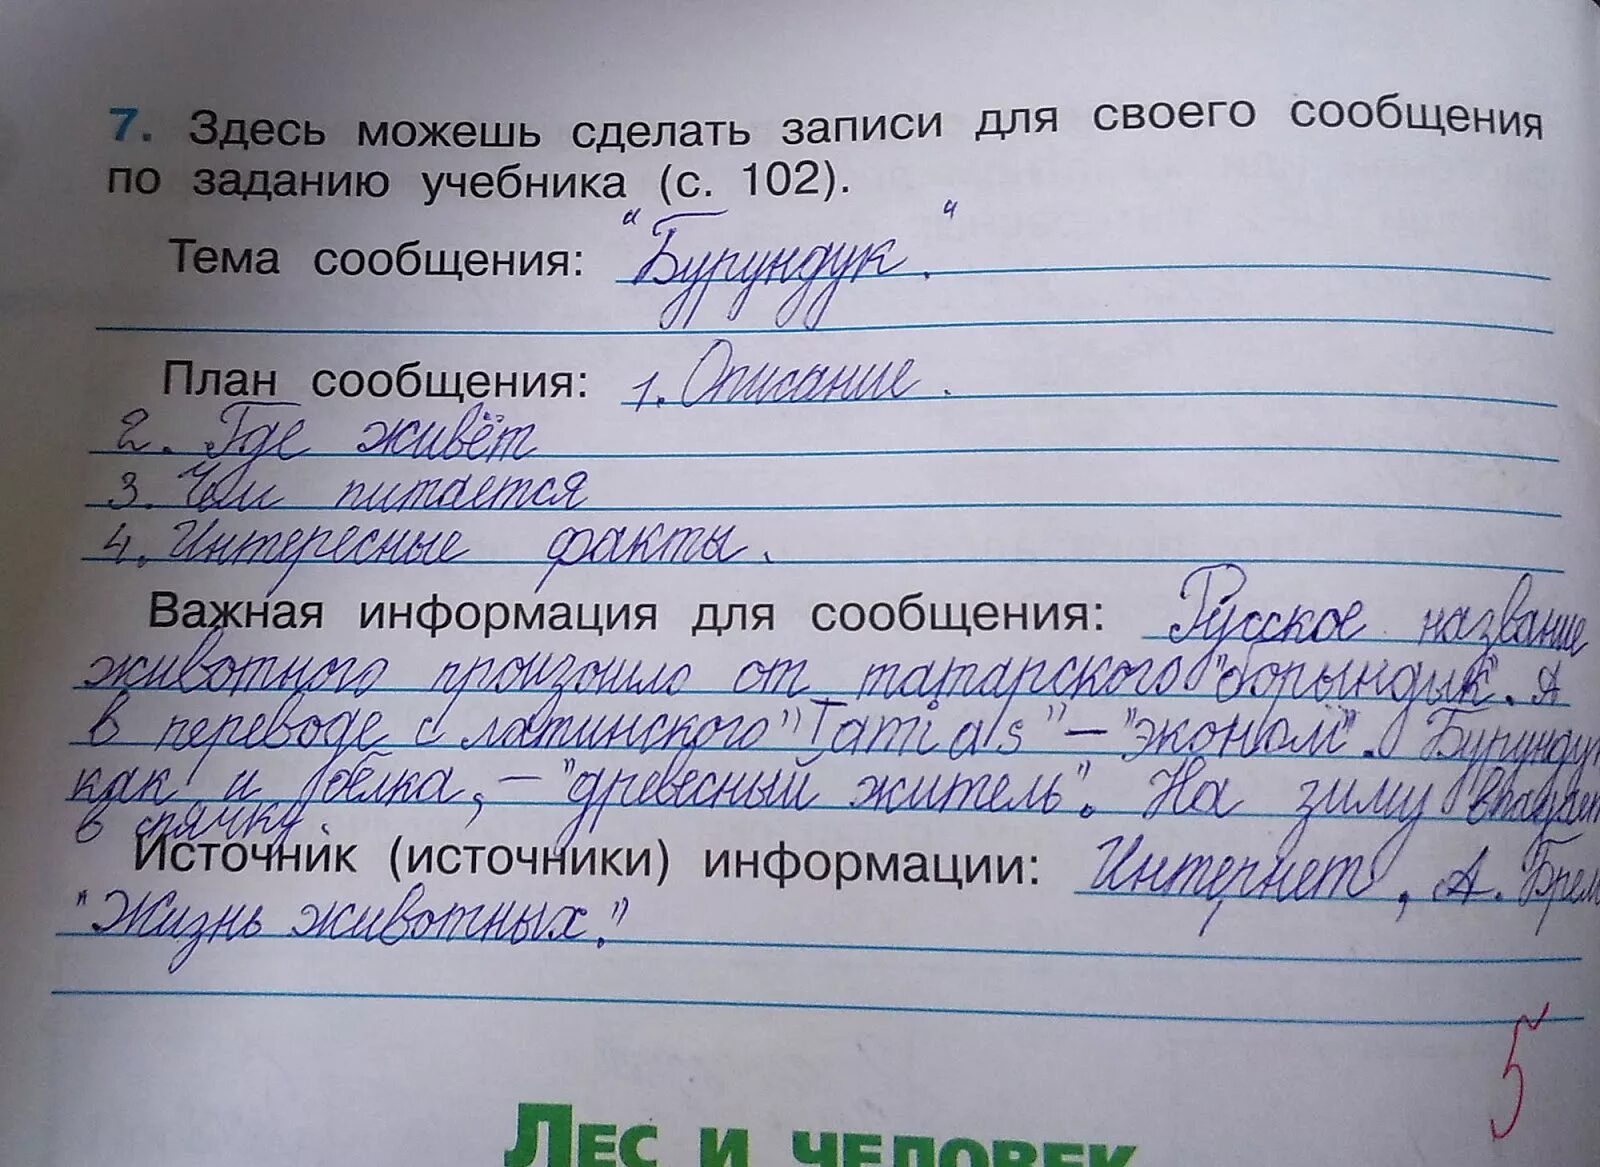 7. Здесь можешь сделать записи для своего сообщения
по заданию учебника (с. 102).
Тема сообщения: "Бурундук."
План сообщения: 1. Описание.
2. Где живёт
3. Чем питается
4. Интересные факты.
Важная информация для сообщения: Русское название
животного произошло от татарского "борындык". А
в переводе с латинского "Tamias" – "эконом". Бурундук
как и белка, – "древесный житель". На зиму впадает
в спячку.
Источник (источники) информации: Интернет, А. Брем
"Жизнь животных."
5
Лес и человек